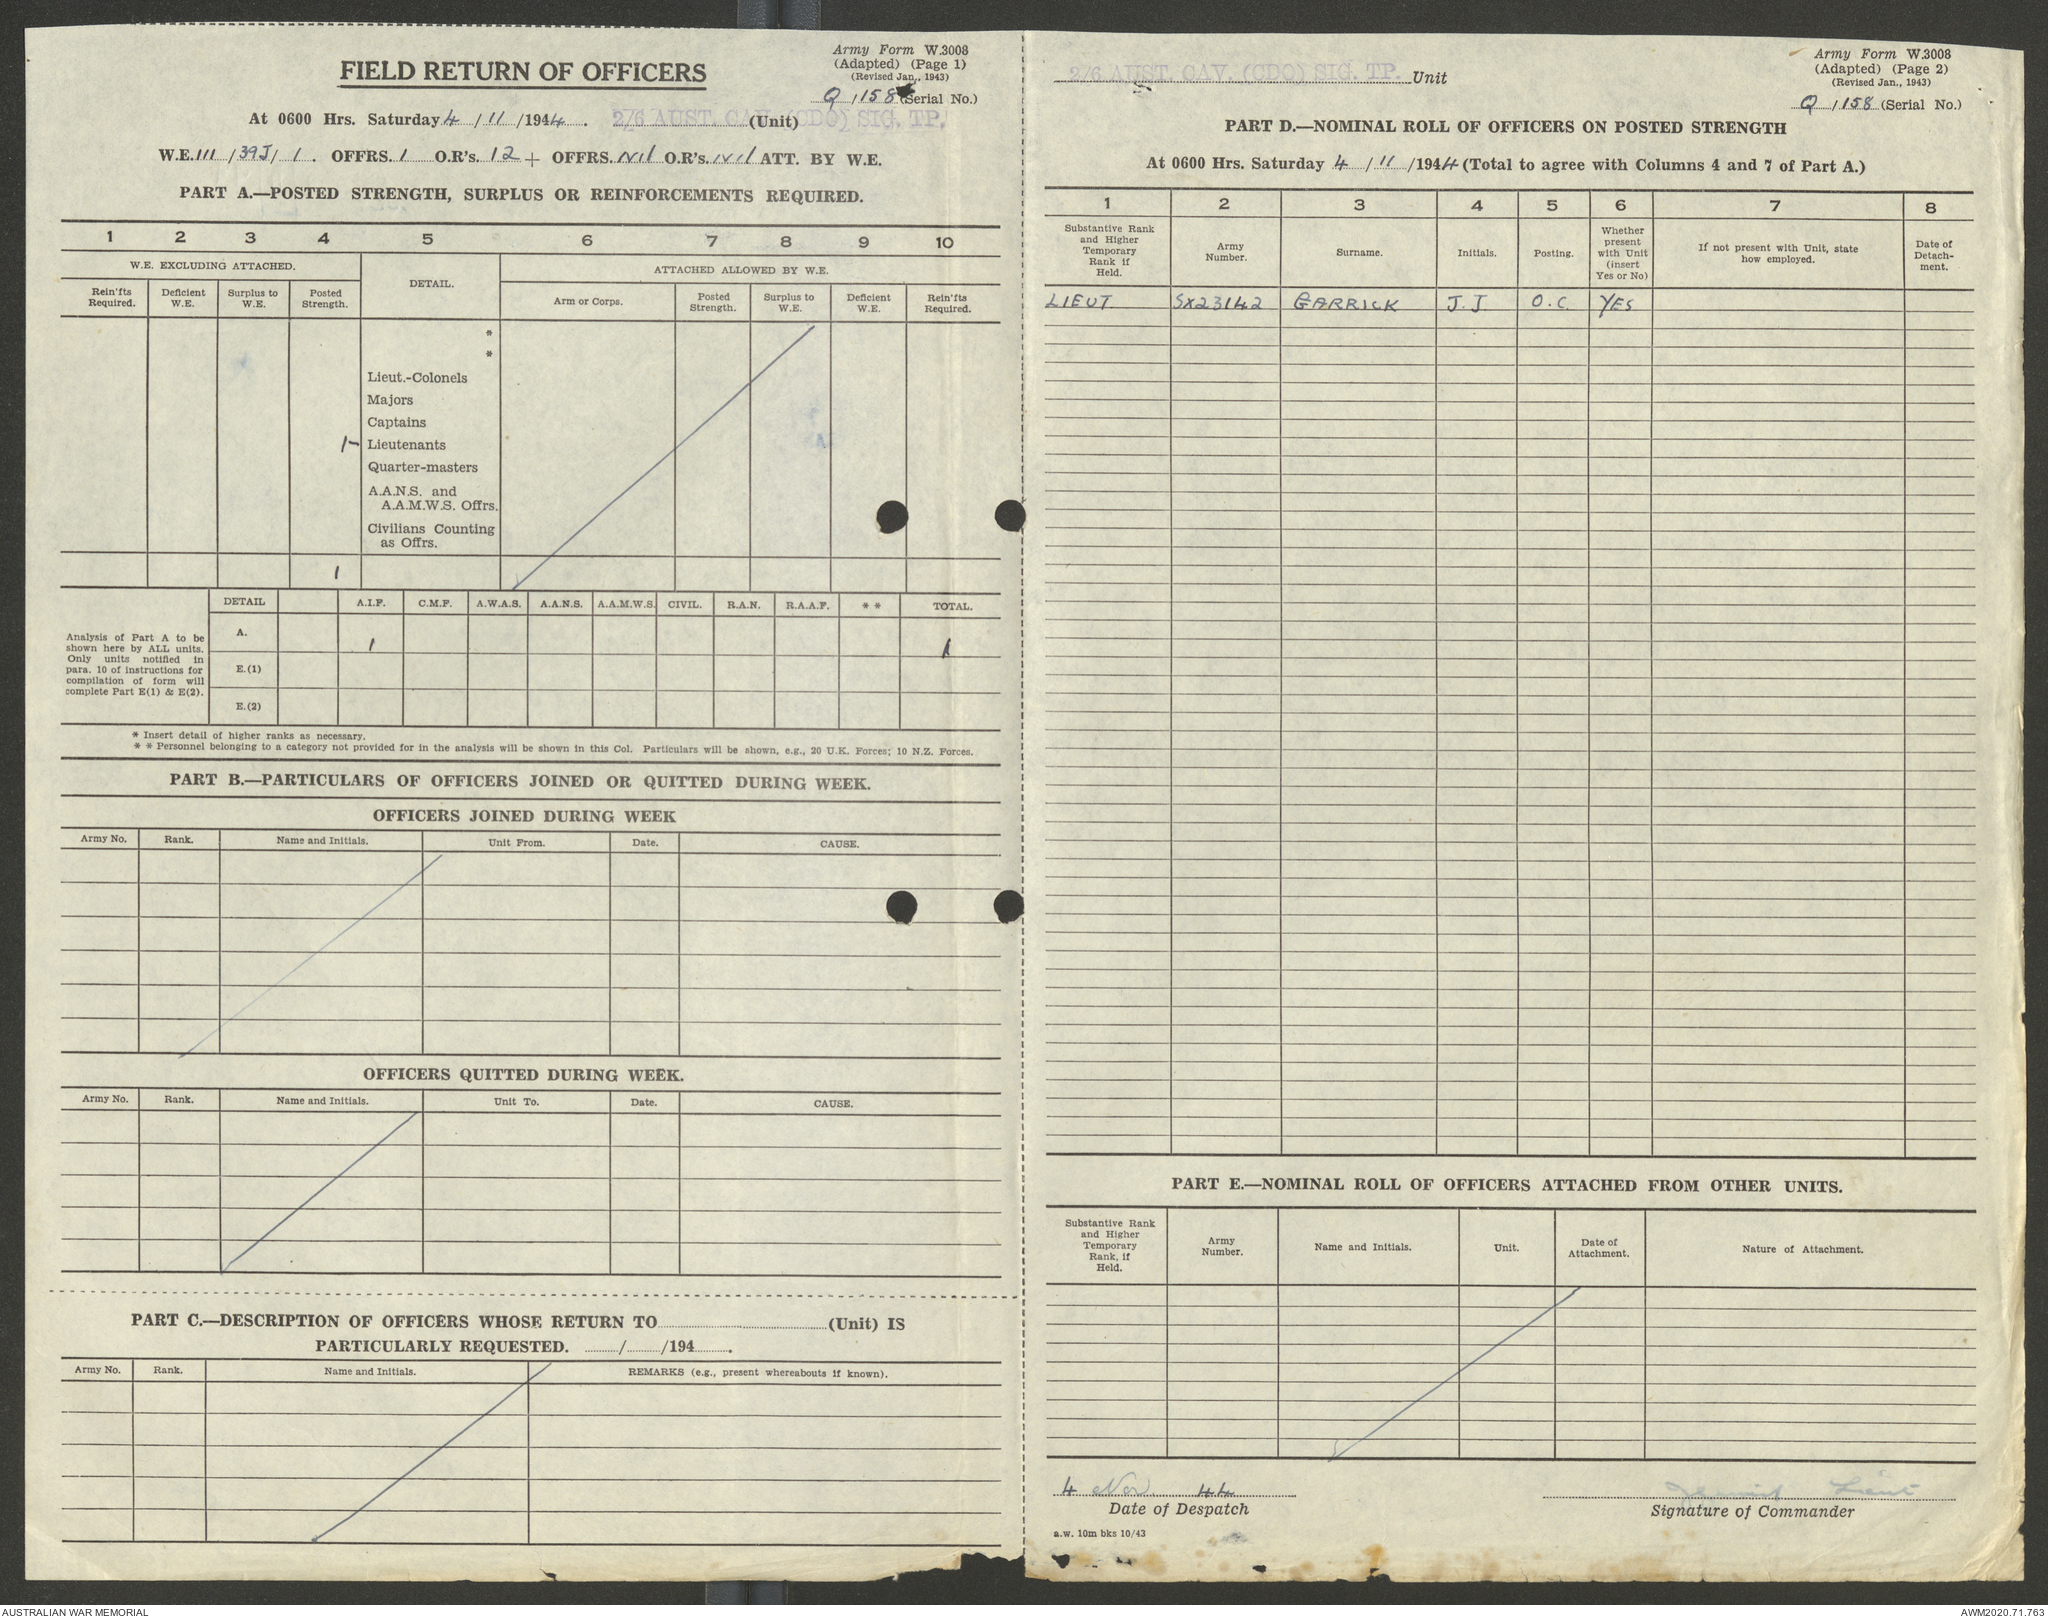 Army Form W.3008
FIELD RETURN OF OFFICERS
(Adapted) (Page 1)
(Revised Jan., 1943)
Q / 158 (Serial No.)
At 0600 Hrs. Saturday 4 / 11 / 1944. 2/6 AUST. CAV. (CDO) SIG. TP. (Unit)
W.E. III / 39J / 1. OFFRS. 1 O.R's. 12 + OFFRS. Nil O.R's. Nil ATT. BY W.E.
PART A.—POSTED STRENGTH, SURPLUS OR REINFORCEMENTS REQUIRED.
1 2 3 4 5 6 7 8 9 10
W.E. EXCLUDING ATTACHED. DETAIL. ATTACHED ALLOWED BY W.E.
Rein'fts Required. Deficient W.E. Surplus to W.E. Posted Strength. Arm or Corps. Posted Strength. Surplus to W.E. Deficient W.E. Rein'fts Required.
*
*
Lieut.-Colonels
Majors
Captains
1 – Lieutenants
Quarter-masters
A.A.N.S. and
A.A.M.W.S. Offrs.
Civilians Counting
as Offrs.
1
DETAIL A.I.F. C.M.F. A.W.A.S. A.A.N.S. A.A.M.W.S. CIVIL. R.A.N. R.A.A.F. * * TOTAL.
Analysis of Part A to be
shown here by ALL units.
Only units notified in
para. 10 of instructions for
compilation of form will
complete Part E(1) & E(2).
A. 1 1
E.(1)
E.(2)
* Insert detail of higher ranks as necessary.
* * Personnel belonging to a category not provided for in the analysis will be shown in this Col. Particulars will be shown, e.g., 20 U.K. Forces; 10 N.Z. Forces.
PART B.—PARTICULARS OF OFFICERS JOINED OR QUITTED DURING WEEK.
OFFICERS JOINED DURING WEEK
Army No. Rank. Name and Initials. Unit From. Date. CAUSE.
OFFICERS QUITTED DURING WEEK.
Army No. Rank. Name and Initials. Unit To. Date. CAUSE.
PART C.—DESCRIPTION OF OFFICERS WHOSE RETURN TO (Unit) IS
PARTICULARLY REQUESTED. / /194 .
Army No. Rank. Name and Initials. REMARKS (e.g., present whereabouts if known).
2/6 AUST. CAV. (CDO) SIG. TP. Unit
Army Form W.3008
(Adapted) (Page 2)
(Revised Jan., 1943)
Q / 158 (Serial No.)
PART D.—NOMINAL ROLL OF OFFICERS ON POSTED STRENGTH
At 0600 Hrs. Saturday 4 / 11 / 1944 (Total to agree with Columns 4 and 7 of Part A.)
1 2 3 4 5 6 7 8
Substantive Rank and Higher Temporary Rank if Held. Army Number. Surname. Initials. Posting. Whether present with Unit (insert Yes or No) If not present with Unit, state how employed. Date of Detach-ment.
LIEUT SX23142 GARRICK J.J O.C. YES
PART E.—NOMINAL ROLL OF OFFICERS ATTACHED FROM OTHER UNITS.
Substantive Rank and Higher Temporary Rank, if Held. Army Number. Name and Initials. Unit. Date of Attachment. Nature of Attachment.
4 Nov 44 Lieut
Date of Despatch Signature of Commander
a.w. 10m bks 10/43
AUSTRALIAN WAR MEMORIAL
AWM2020.71.763